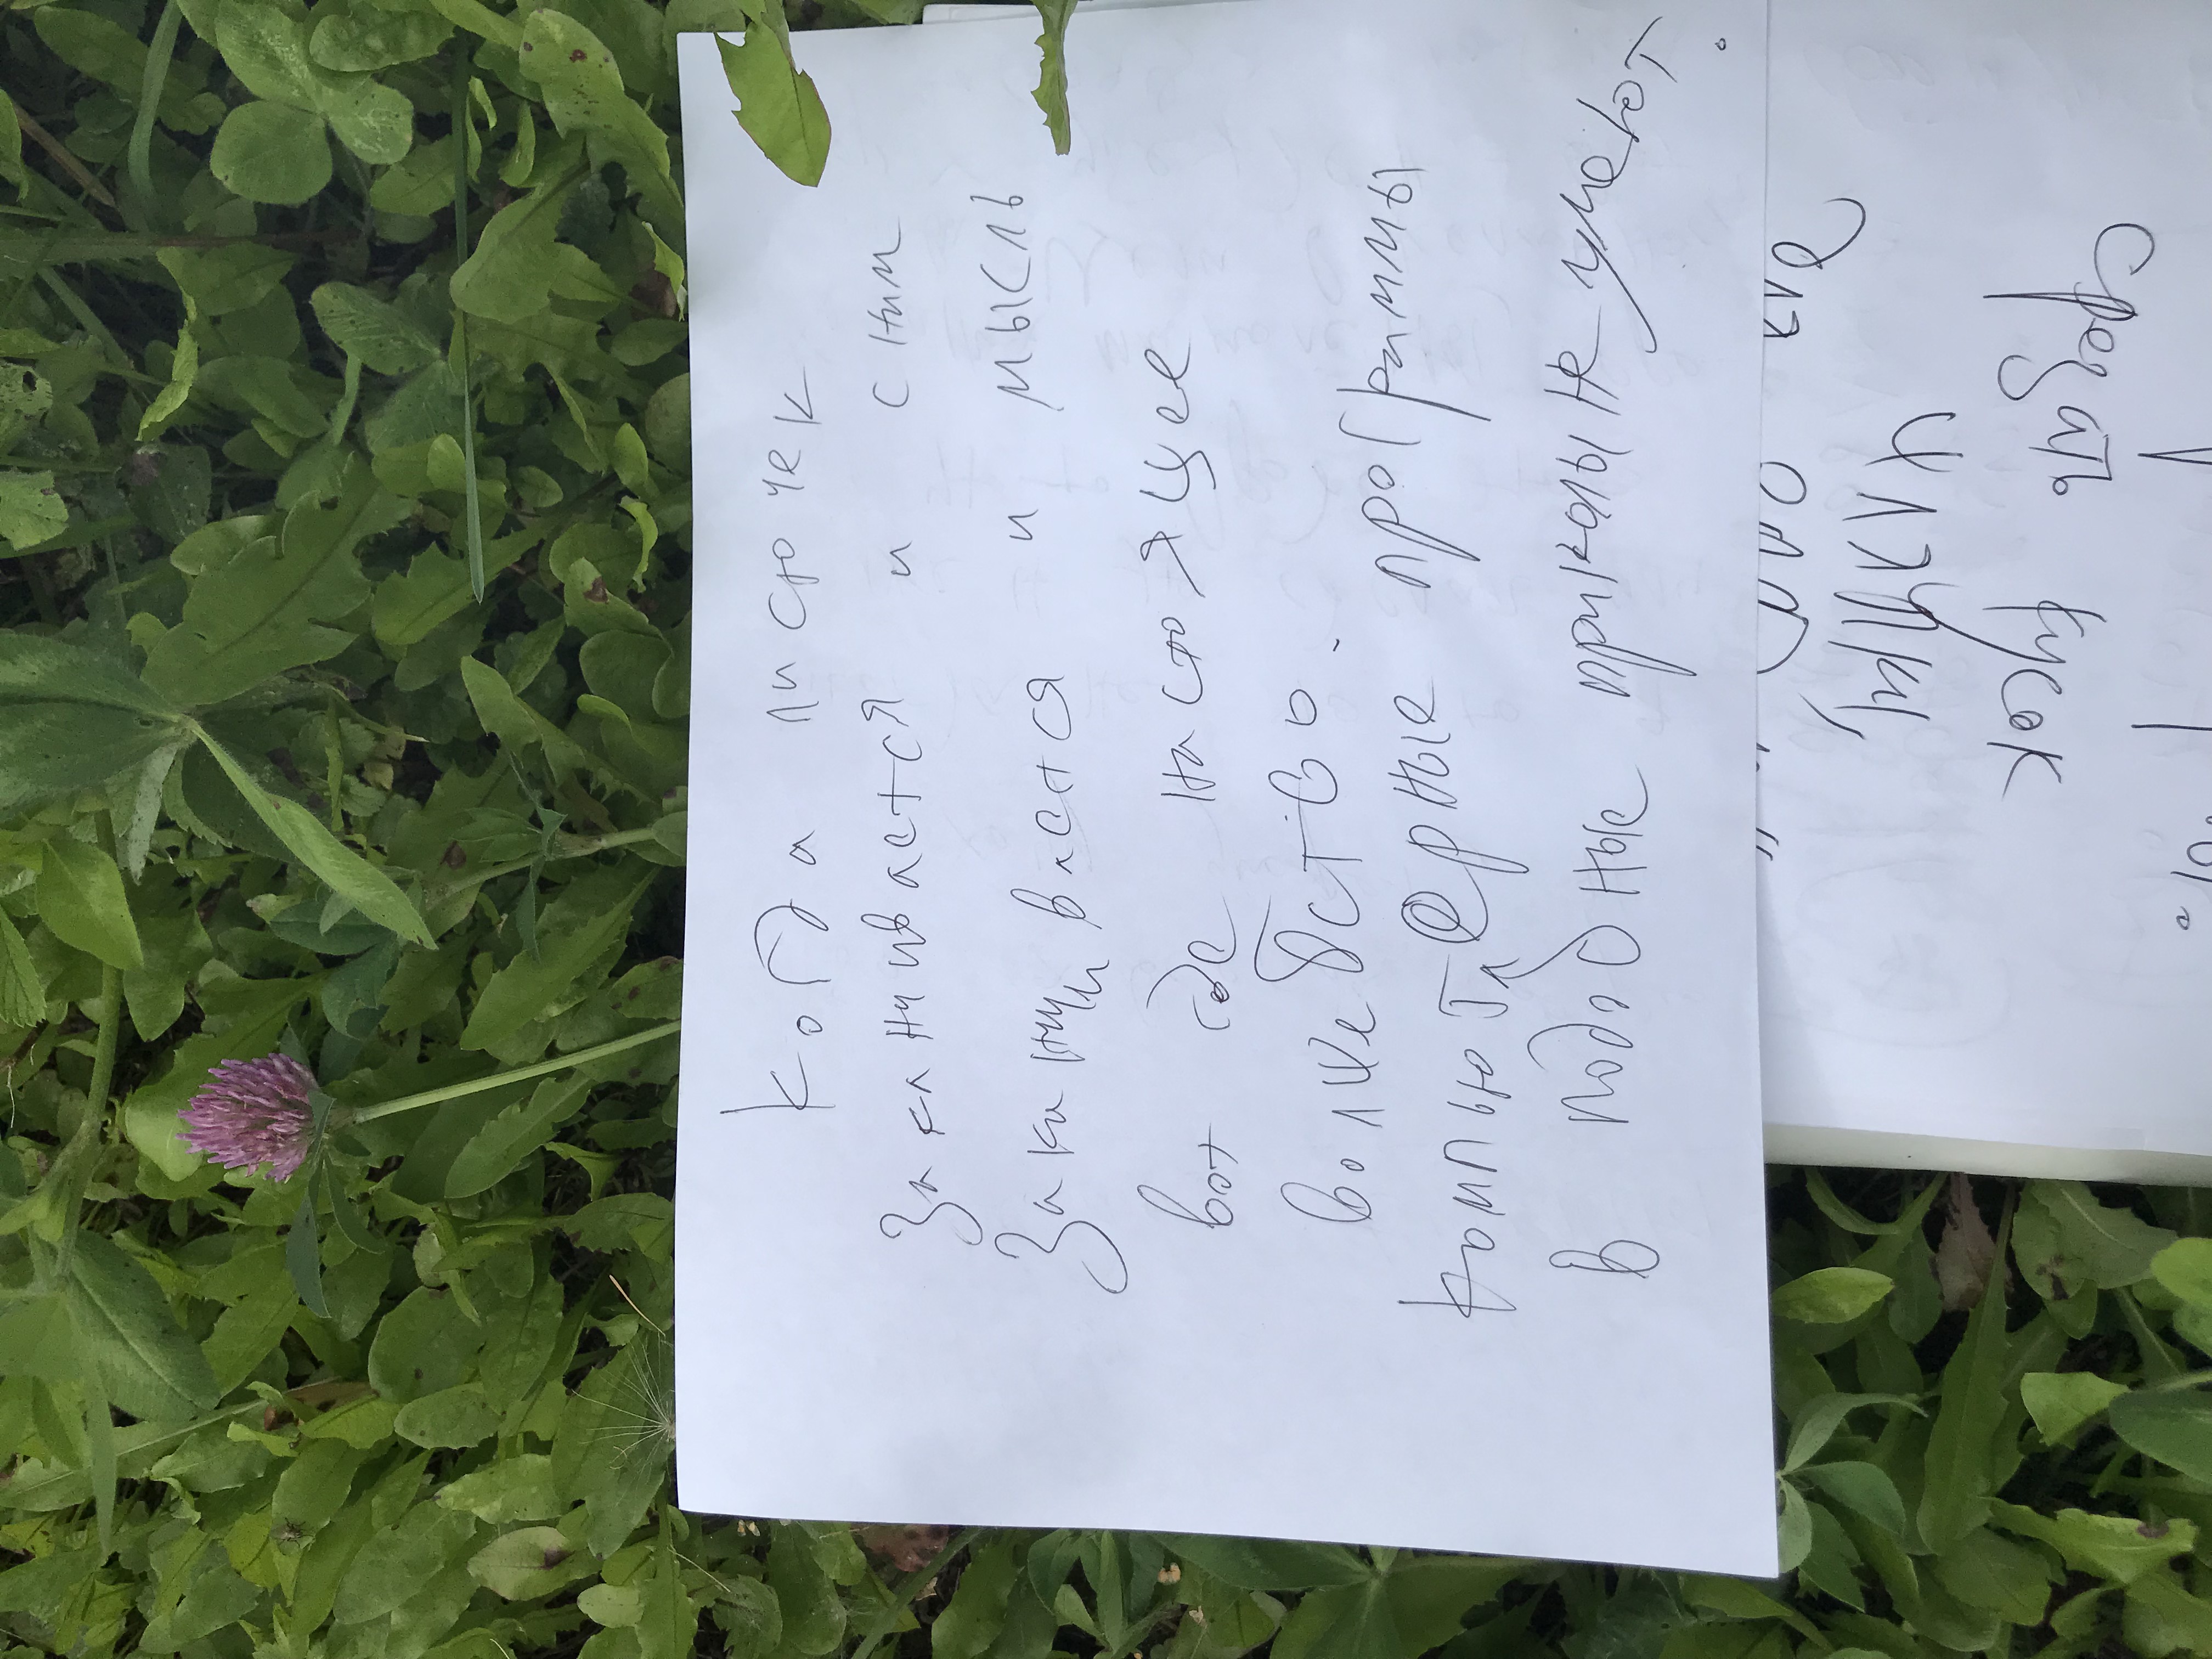 Когда листочек
заканчивается и с ним
заканчивается и мысль
вот где настоящее
волшебство.
Компьютерные программы
в подобные приколы не умеют.
срезать кусок
для